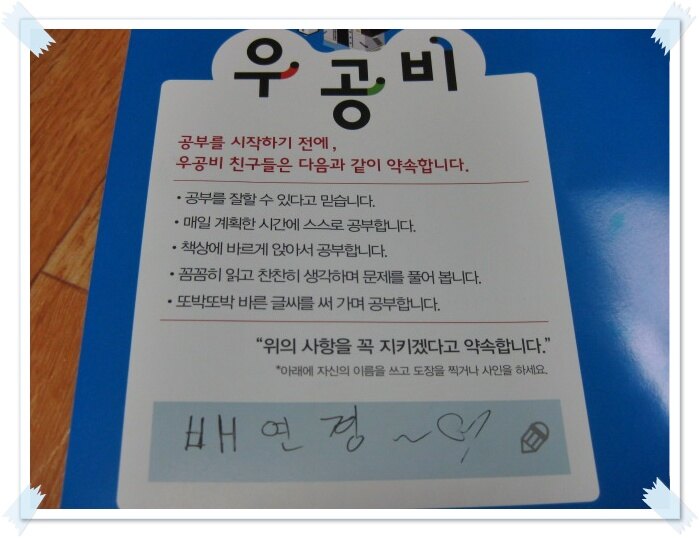 우공비
공부를 시작하기 전에,
우공비 친구들은 다음과 같이 약속합니다.
• 공부를 잘할 수 있다고 믿습니다.
• 매일 계획한 시간에 스스로 공부합니다.
• 책상에 바르게 앉아서 공부합니다.
• 꼼꼼히 읽고 찬찬히 생각하며 문제를 풀어 봅니다.
• 또박또박 바른 글씨를 써 가며 공부합니다.
“위의 사항을 꼭 지키겠다고 약속합니다.”
*아래에 자신의 이름을 쓰고 도장을 찍거나 사인을 하세요.
배연정~♡